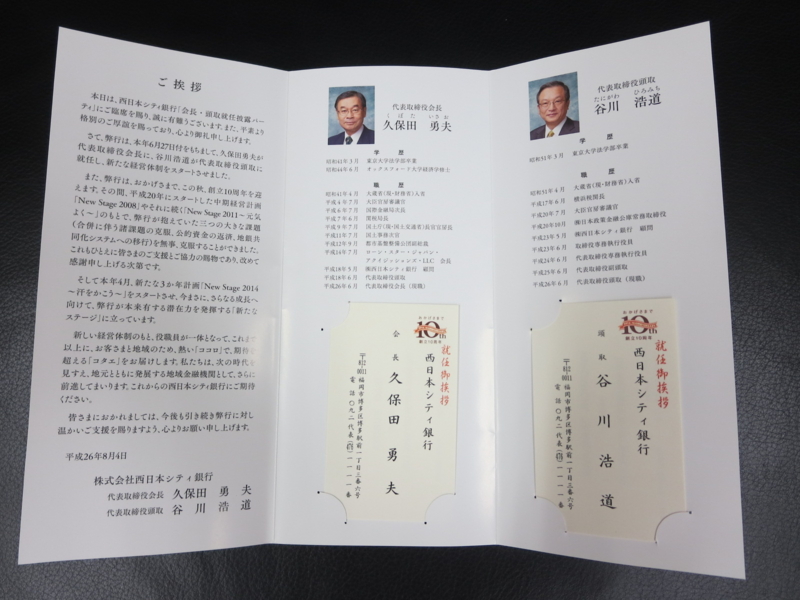 ご挨拶
本日は、西日本シティ銀行「会長・頭取就任披露パー
ティ」にご臨席を賜り、誠に有難うございます。また、平素より
格別のご厚誼を賜っており、心より御礼申し上げます。
さて、弊行は、本年6月27日付をもちまして、久保田勇夫が
代表取締役会長に、谷川浩道が代表取締役頭取に
就任し、新たな経営体制をスタートさせました。
また、弊行は、おかげさまで、この秋、創立10周年を迎
えます。その間、平成20年にスタートした中期経営計画
「New Stage 2008」やそれに続く「New Stage 2011～元気
よく～」のもとで、弊行が抱えていた三つの大きな課題
（合併に伴う諸課題の克服、公的資金の返済、地銀共
同化システムへの移行）を無事、克服することができました。
これもひとえに皆さまのご支援とご協力の賜物であり、改めて
感謝申し上げる次第です。
そして本年4月、新たな3か年計画「New Stage 2014
～汗をかこう～」をスタートさせ、今まさに、さらなる成長へ
向けて、弊行が本来有する潜在力を発揮する「新たな
ステージ」に立っています。
新しい経営体制のもと、役職員が一体となって、これまで
以上に、お客さまと地域のため、熱い「ココロ」で、期待を
超える「コタエ」をお届けします。私たちは、次の時代を
見すえ、地元とともに発展する地域金融機関として、さらに
前進してまいります。これからの西日本シティ銀行にご期待
ください。
皆さまにおかれましては、今後も引き続き弊行に対し
温かいご支援を賜りますよう、心よりお願い申し上げます。
平成26年8月4日
株式会社西日本シティ銀行
代表取締役会長 久保田 勇夫
代表取締役頭取 谷川 浩道
代表取締役会長
くぼた いさお
久保田 勇夫
学 歴
昭和41年3月 東京大学法学部卒業
昭和44年6月 オックスフォード大学経済学修士
職 歴
昭和41年4月 大蔵省(現・財務省)入省
平成4年7月 大臣官房審議官
平成6年7月 国際金融局次長
平成7年6月 関税局長
平成9年7月 国土庁(現・国土交通省)長官官房長
平成11年7月 国土事務次官
平成12年9月 都市基盤整備公団副総裁
平成14年7月 ローン・スター・ジャパン・
アクイジッションズ・LLC 会長
平成18年5月 ㈱西日本シティ銀行 顧問
平成18年6月 代表取締役頭取
平成26年6月 代表取締役会長（現職）
おかげさまで
10th
創立10周年
就任御挨拶
西日本シティ銀行
会長 久保田勇夫
福岡市博多区博多駅前一丁目三番六号
代表取締役頭取
たにがわ ひろみち
谷川 浩道
学 歴
昭和51年3月 東京大学法学部卒業
職 歴
昭和51年4月 大蔵省(現・財務省)入省
平成17年6月 横浜税関長
平成20年7月 大臣官房審議官
平成20年10月 ㈱日本政策金融公庫常務取締役
平成23年5月 ㈱西日本シティ銀行 顧問
平成23年6月 取締役専務執行役員
平成24年6月 代表取締役専務執行役員
平成25年6月 代表取締役副頭取
平成26年6月 代表取締役頭取（現職）
おかげさまで
10th
創立10周年
就任御挨拶
西日本シティ銀行
頭取 谷川浩道
福岡市博多区博多駅前一丁目三番六号